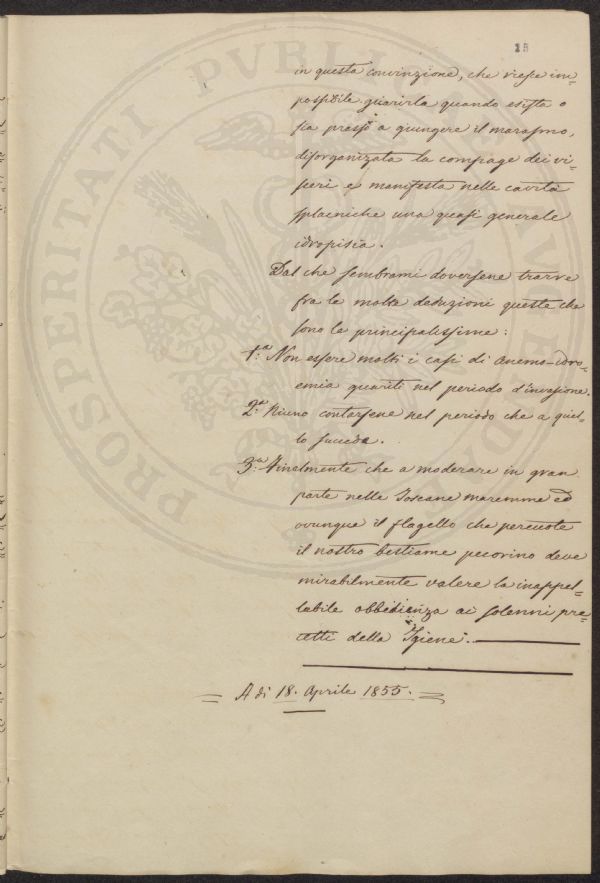 15
in questa convinzione, che riesce im=
possibile guarirla quando esista o
sia presso a giungere il marasmo,
disorganizzata la compage dei vi=
sceri e manifesta nelle cavità
splacniche una quasi generale
idropisia.
Dal che sembrami doversene trarre
fra le molte deduzioni queste che
sono le principalissime:
1.a Non essere molti i casi di Anemo=idro=
emia guariti nel periodo d'invasione.
2.a Niuno contarsene nel periodo che a quel=
lo succeda.
3.a Finalmente che a moderare in gran
parte nelle Toscane maremme ed
ovunque il flagello che percuote
il nostro bestiame pecorino deve
mirabilmente valere la inappel=
labile obbedienza ai solenni pre=
cetti della Igiene.
A di 18. Aprile 1855.
PROSPERITATI PUBLICAE